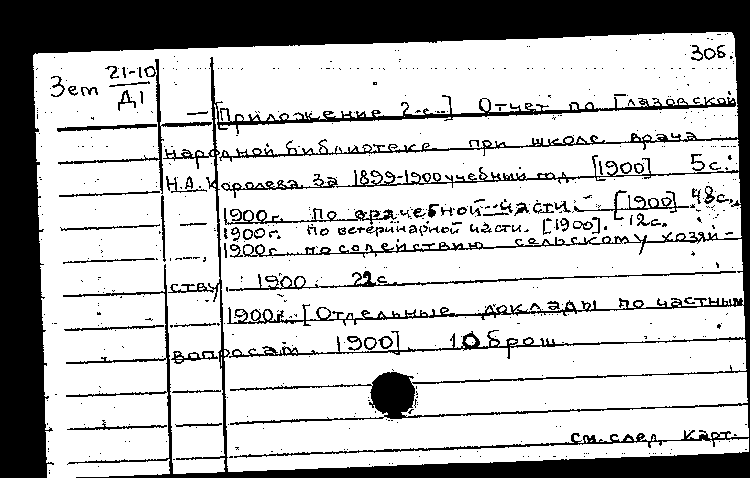 306.
Зет 21-10
Д1
— [Приложение 2-е...] Отчет по Глазовской
народной библиотеке при школе врача
Н.А. Королева за 1899-1900 учебный год. [1900] 5с.
— 1900г. По врачебной части. — [1900] 48с.
1900г. По ветеринарной части. [1900]. 12с.
1900г. по содействию сельскому хозяй-
ству. 1900. 22с.
1900г. [Отдельные доклады по частным
вопросам. 1900]. 10 брош.
см. след. карт.